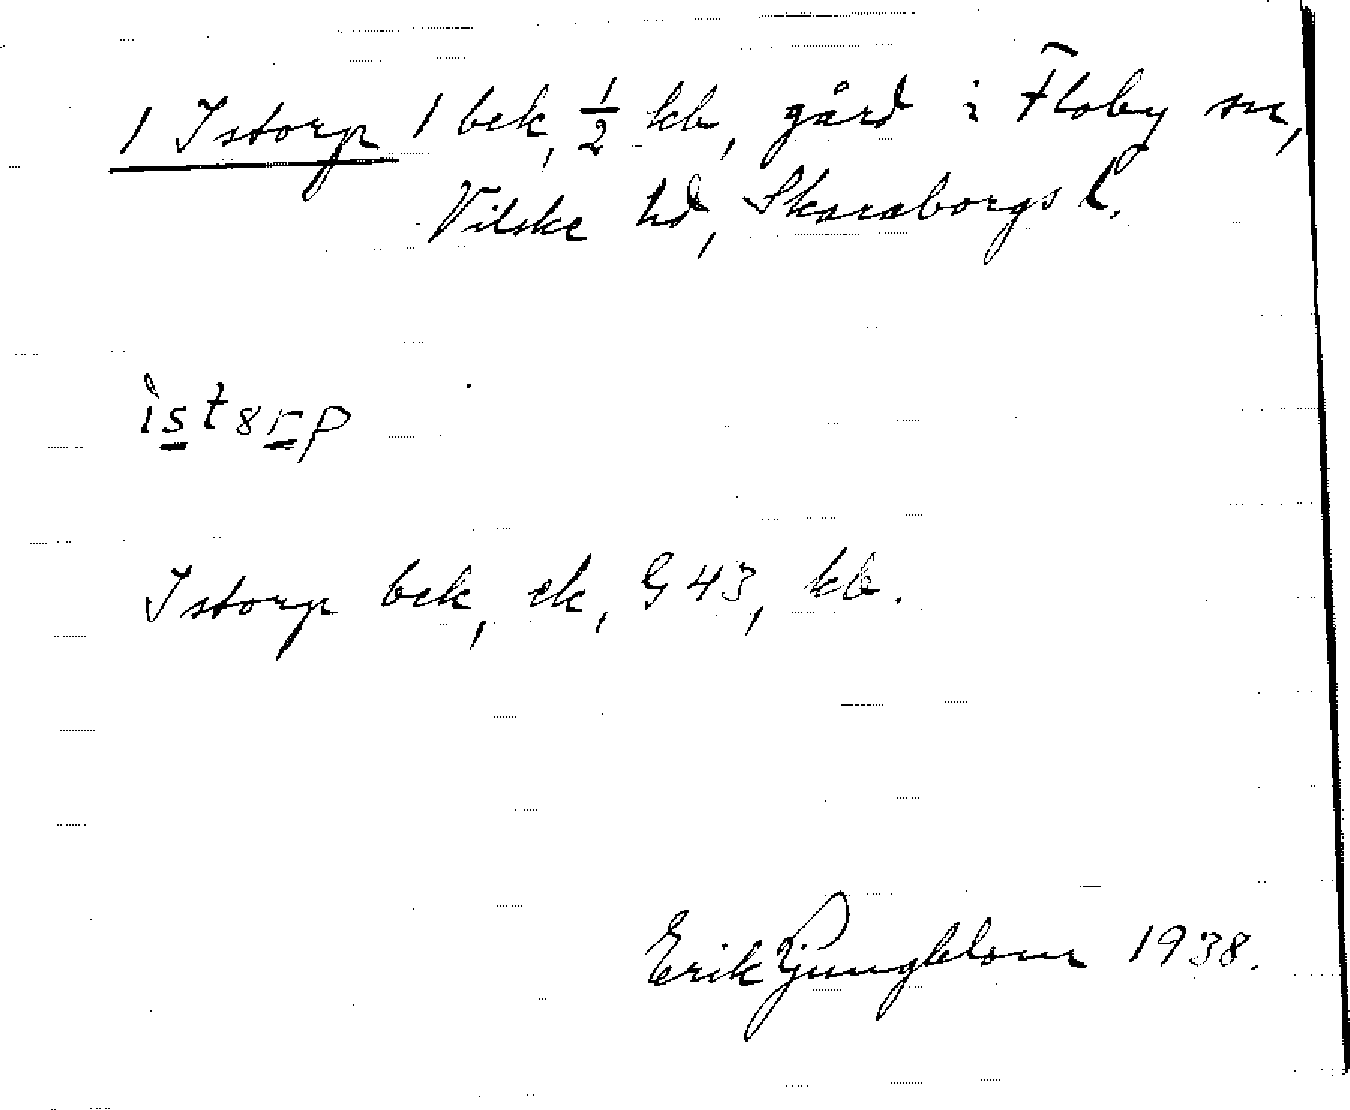 1 Istorp 1 bek, ½ kb, gård i Floby sn,
Vilske hd, Skaraborgs l.
ìst8rp
Istorp bek, ek, G 43, kb.
Erik Ljungblom 1938.